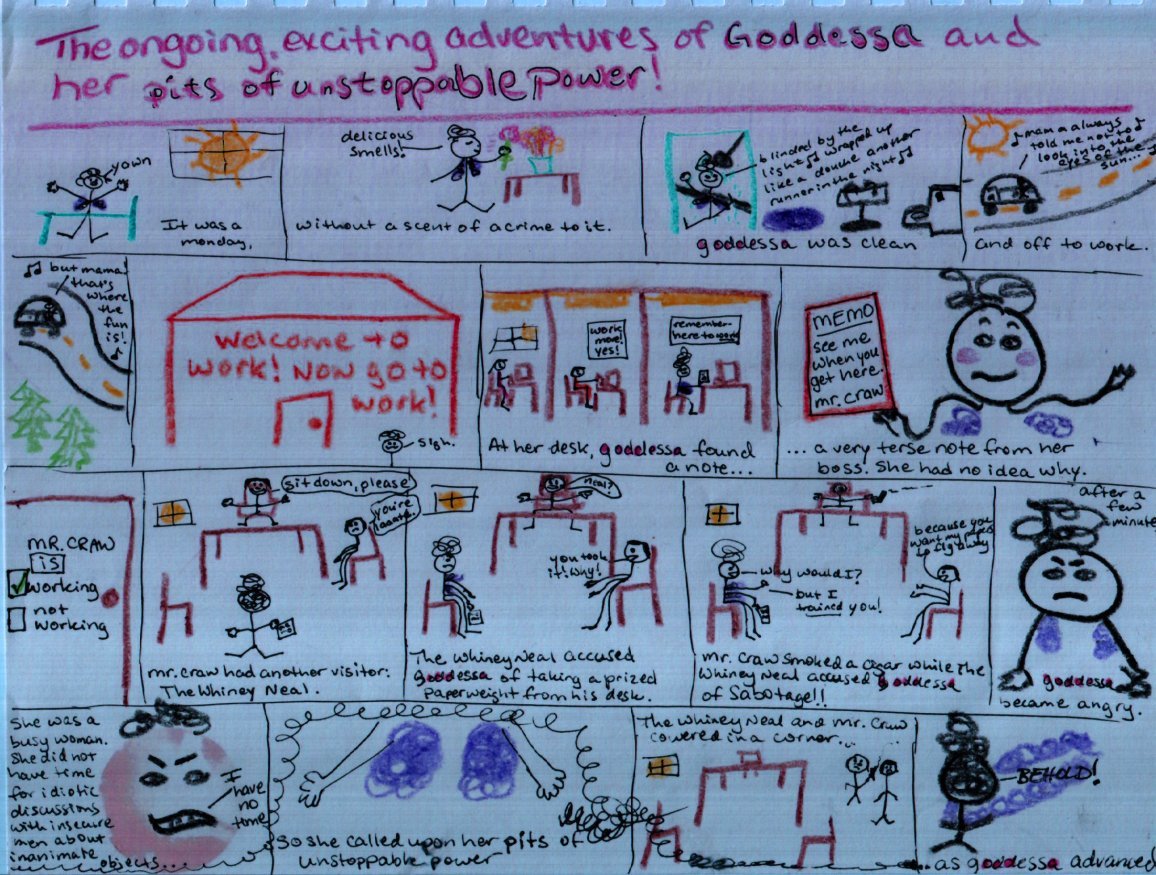 The ongoing, exciting adventures of Goddessa and
her pits of unstoppable power!
yawn
It was a
monday,
delicious
smells!
without a scent of a crime to it.
blinded by the
light ♫ wrapped up
like a douche another
runner in the night ♫
goddessa was clean
♪ mama always
told me not to ♪
look into the
eyes of the
sun... ♪
and off to work.
♫ but mama!
that's
where
the
fun
is! ♪
Welcome to
work! Now go to
work!
sigh.
work
more!
yes!
remember
here to work
At her desk, goddessa found
a note...
MEMO
see me
when you
get here.
mr. craw
... a very terse note from her
boss. She had no idea why.
MR. CRAW
is
working
not
working
sit down, please
you're
mr. craw had another visitor:
The Whiney Neal.
neal?
you took
it! Why!
The Whiney Neal accused
goddessa of taking a prized
paperweight from his desk.
because you
want my
why would I?
but I
trained you!
Mr. Craw smoked a cigar while The
Whiney Neal accused goddessa
of Sabotage!!
after a
few
minutes
goddessa
became angry.
She was a
busy woman.
She did not
have time
for idiotic
discussions
with insecure
men about
inanimate
objects...
I
have
no
time
So she called upon her pits of
unstoppable power
The Whiney Neal and Mr. Craw
cowered in a corner...
BEHOLD!
...as goddessa advanced